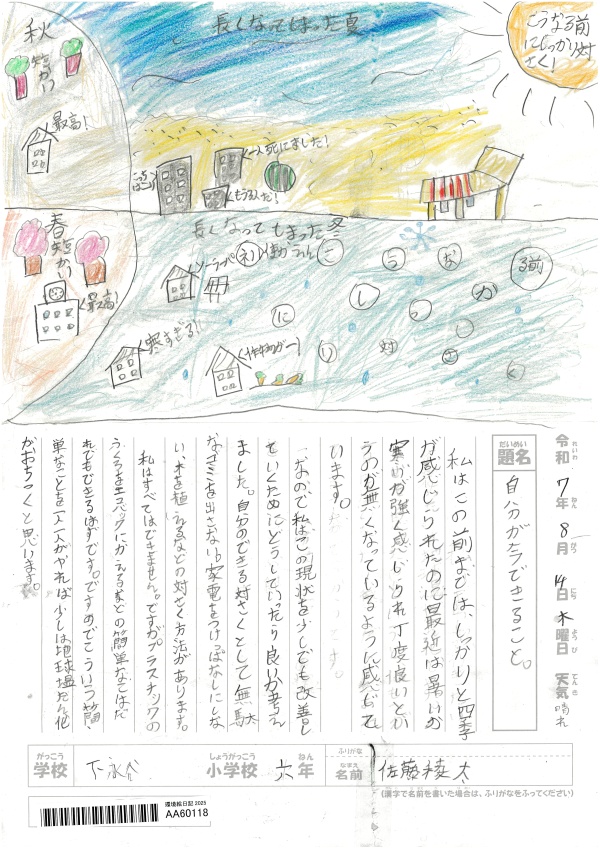 秋
短かい
最高!
長くなってしまった夏
こうなる前
にしっかり対
さく!
一人死にました!
こっち
もう3人だ!
春
短かい
最高!
長くなってしまった冬
ソーラーパネル使がうれん
こうなる前
にしっかり対さく
寒すぎる!
作物がー
令和7年8月14日木曜日 天気 晴れ
れいわ ねん がつ にち ようび てんき
だいめい
題名
自分が今できること。
私はこの前までは、しっかりと四季
が感じられたのに最近は暑いか
寒いが強く感じられ丁度良いとい
うのが無くなっているように感じて
います。
なので私はこの現状を少しでも改善し
ていくためにどうしていったら良いか考え
ました。自分のできる対さくとして無駄
なゴミを出さない。家電をつけっぱなしにしな
い、木を植えるなどの対さく方法があります。
私はすべてはできません。ですがプラスチックの
ふくろをエコバックにかえるなどの簡単なことはだ
れでもできるはずです。ですのでこういう簡
単なことを一人一人がやれば少しは地球温だん化
がおちつくと思います。
がっこう
学校
下永谷
しょうがっこう
小学校
六
ねん
年
ふりがな
なまえ
名前
佐藤稜太
(漢字で名前を書いた場合は、ふりがなをふってください)
環境絵日記 2025
AA60118